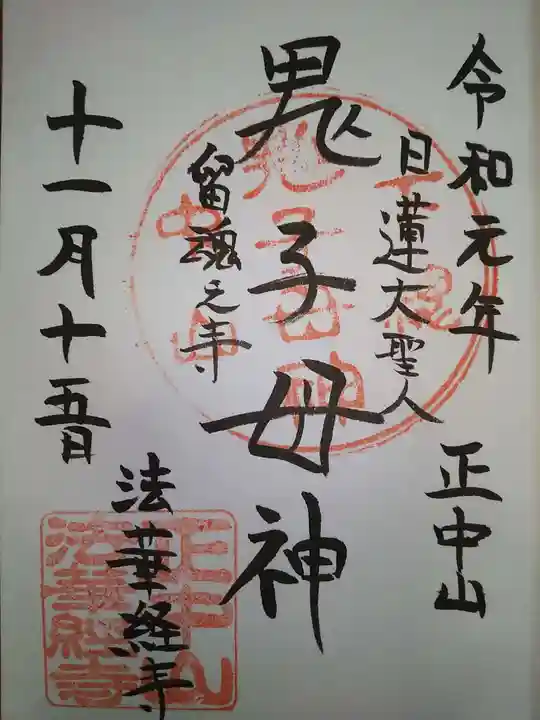 令和元年
正中山
日蓮大聖人
鬼子母神
留魂之寺
法華経寺
十一月十五日
正中山
法華経寺